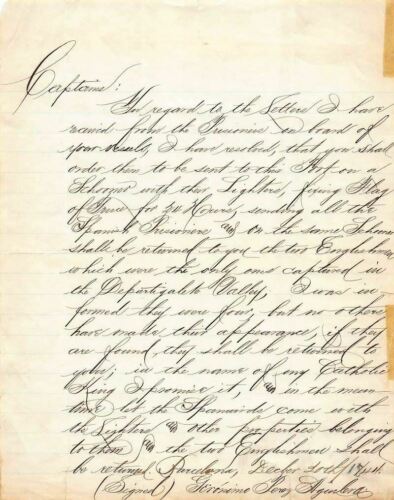 Captains:
In regard to the Letters I have
receivd from the Prisoners on board of
your vessels, I have resolved, that you shall
order them to be sent to this Port on a
Schooner with their Lighters, fixing Flag
of Truce for 24 Hours, sending all the
Spanish Prisoners & on the same Schooner
shall be returned to you the two Englishmen
which were the only ones captured in
the Valley, I was in-
formed they were four, but no others
have made their appearance, if they
are found they shall be returned to
you; in the name of my Catholic
King I promise it, & in the mean
time let the Spaniards come with
the Lighters & other properties belonging
to them & the two Englishmen shall
be returned. Decber 20th
(Signed) Geronimo